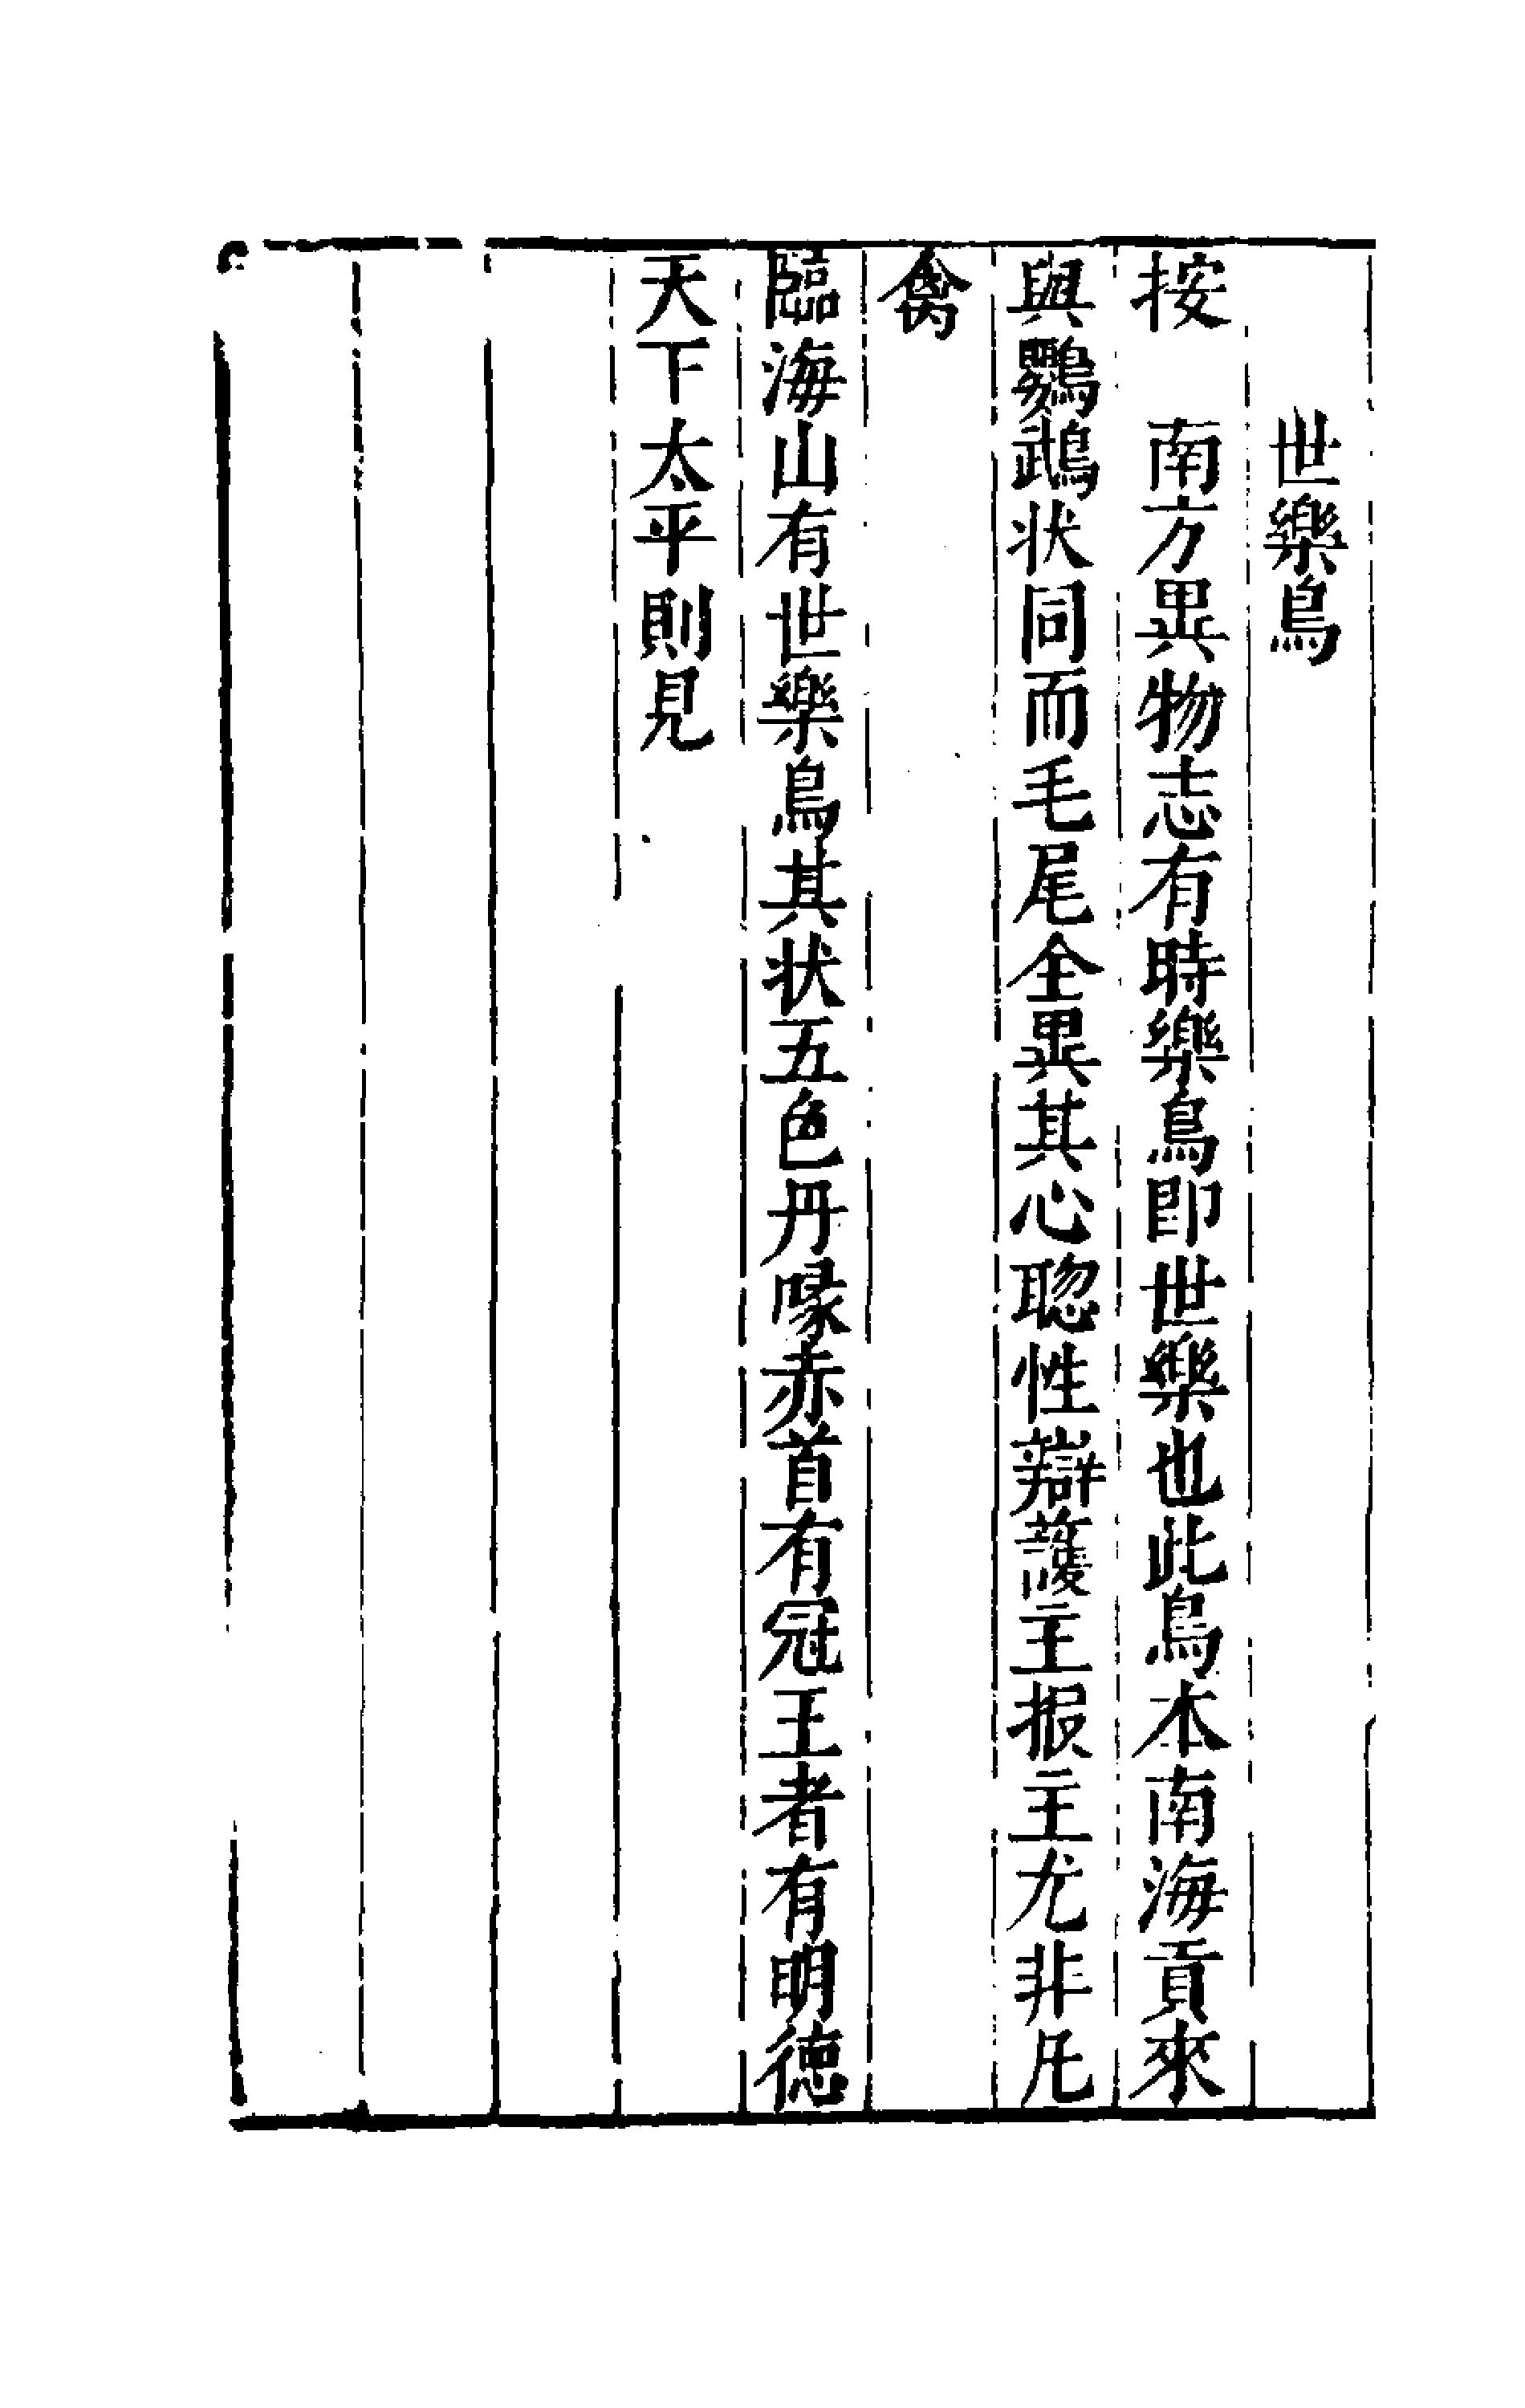 世樂鳥
按　南方異物志有時樂鳥即世樂也此鳥本南海貢來
與鸚鵡状同而毛尾全異其心聦性辯護主报主尤非凡
禽
臨海山有世樂鳥其状五色丹喙赤首有冠王者有明德
天下太平則見